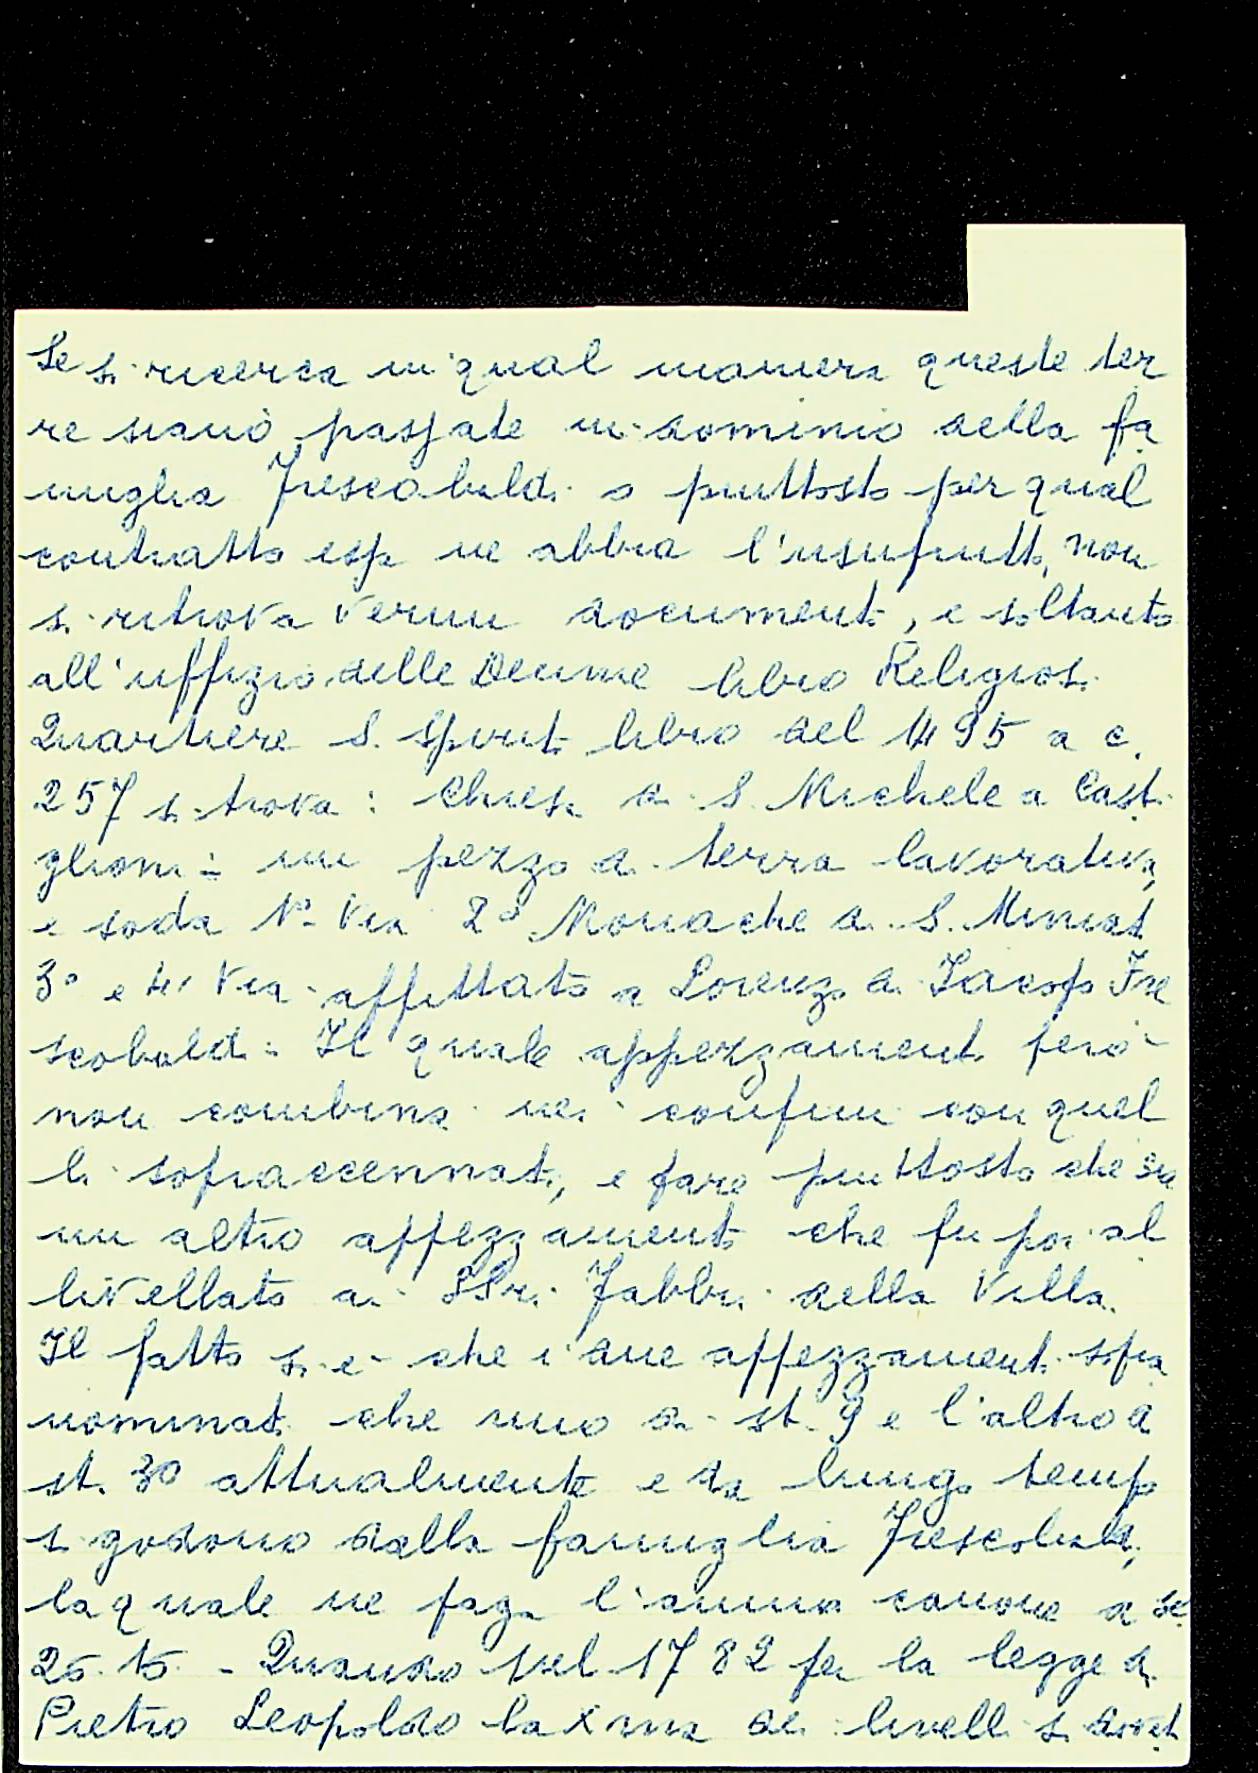 Se si ricerca in qual maniera queste ter
re siano passate in dominio della fa
miglia Frescobaldi o piuttosto per qual
contratto essa ne abbia l'usufrutto, non
si ritrova verun documento, e soltanto
all'uffizio delle Decime libro Religiosi
Quartiere S. Spirito libro del 1495 a c.
257 si trova: Chiesa di S. Michele a Casti
glioni = un pezzo di terra lavorativa
e soda 1° Via 2° Monache di S. Miniato
3° e 4° Via affittato a Lorenzo di Iacopo Fre
scobaldi = Il quale appezzamento però
non combina nei confini con quel
li sopraccennati, e pare piuttosto che sia
un altro appezzamento che fu poi al
livellato ai SSri. Fabbri della Villa.
Il fatto si è che i due appezzamenti sopra
nominati che uno di st. 9 e l'altro di
st. 30 attualmente e da lungo tempo
si godono dalla famiglia Frescobaldi,
la quale ne paga l'annuo canone di sc.
25.15. - Quando nel 1782 per la legge di
Pietro Leopoldo la xma dei livelli si dovet